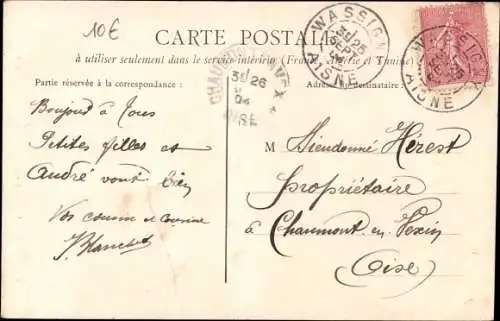 10€
CARTE POSTALE
à utiliser seulement dans le service intérieur (France, Algérie et Tunisie)
Partie réservée à la correspondance :
Adresse du destinataire :
WASSIGNY
25
SEPT
AISNE
WASSIGNY
25
AISNE
CHAUMONT EN VEXIN
26
OISE
Bonjour à tous
Petites filles et
André vont bien
Vos cousin et cousine
M Dieudonné Hérest
propriétaire
à Chaumont en Vexin
Oise